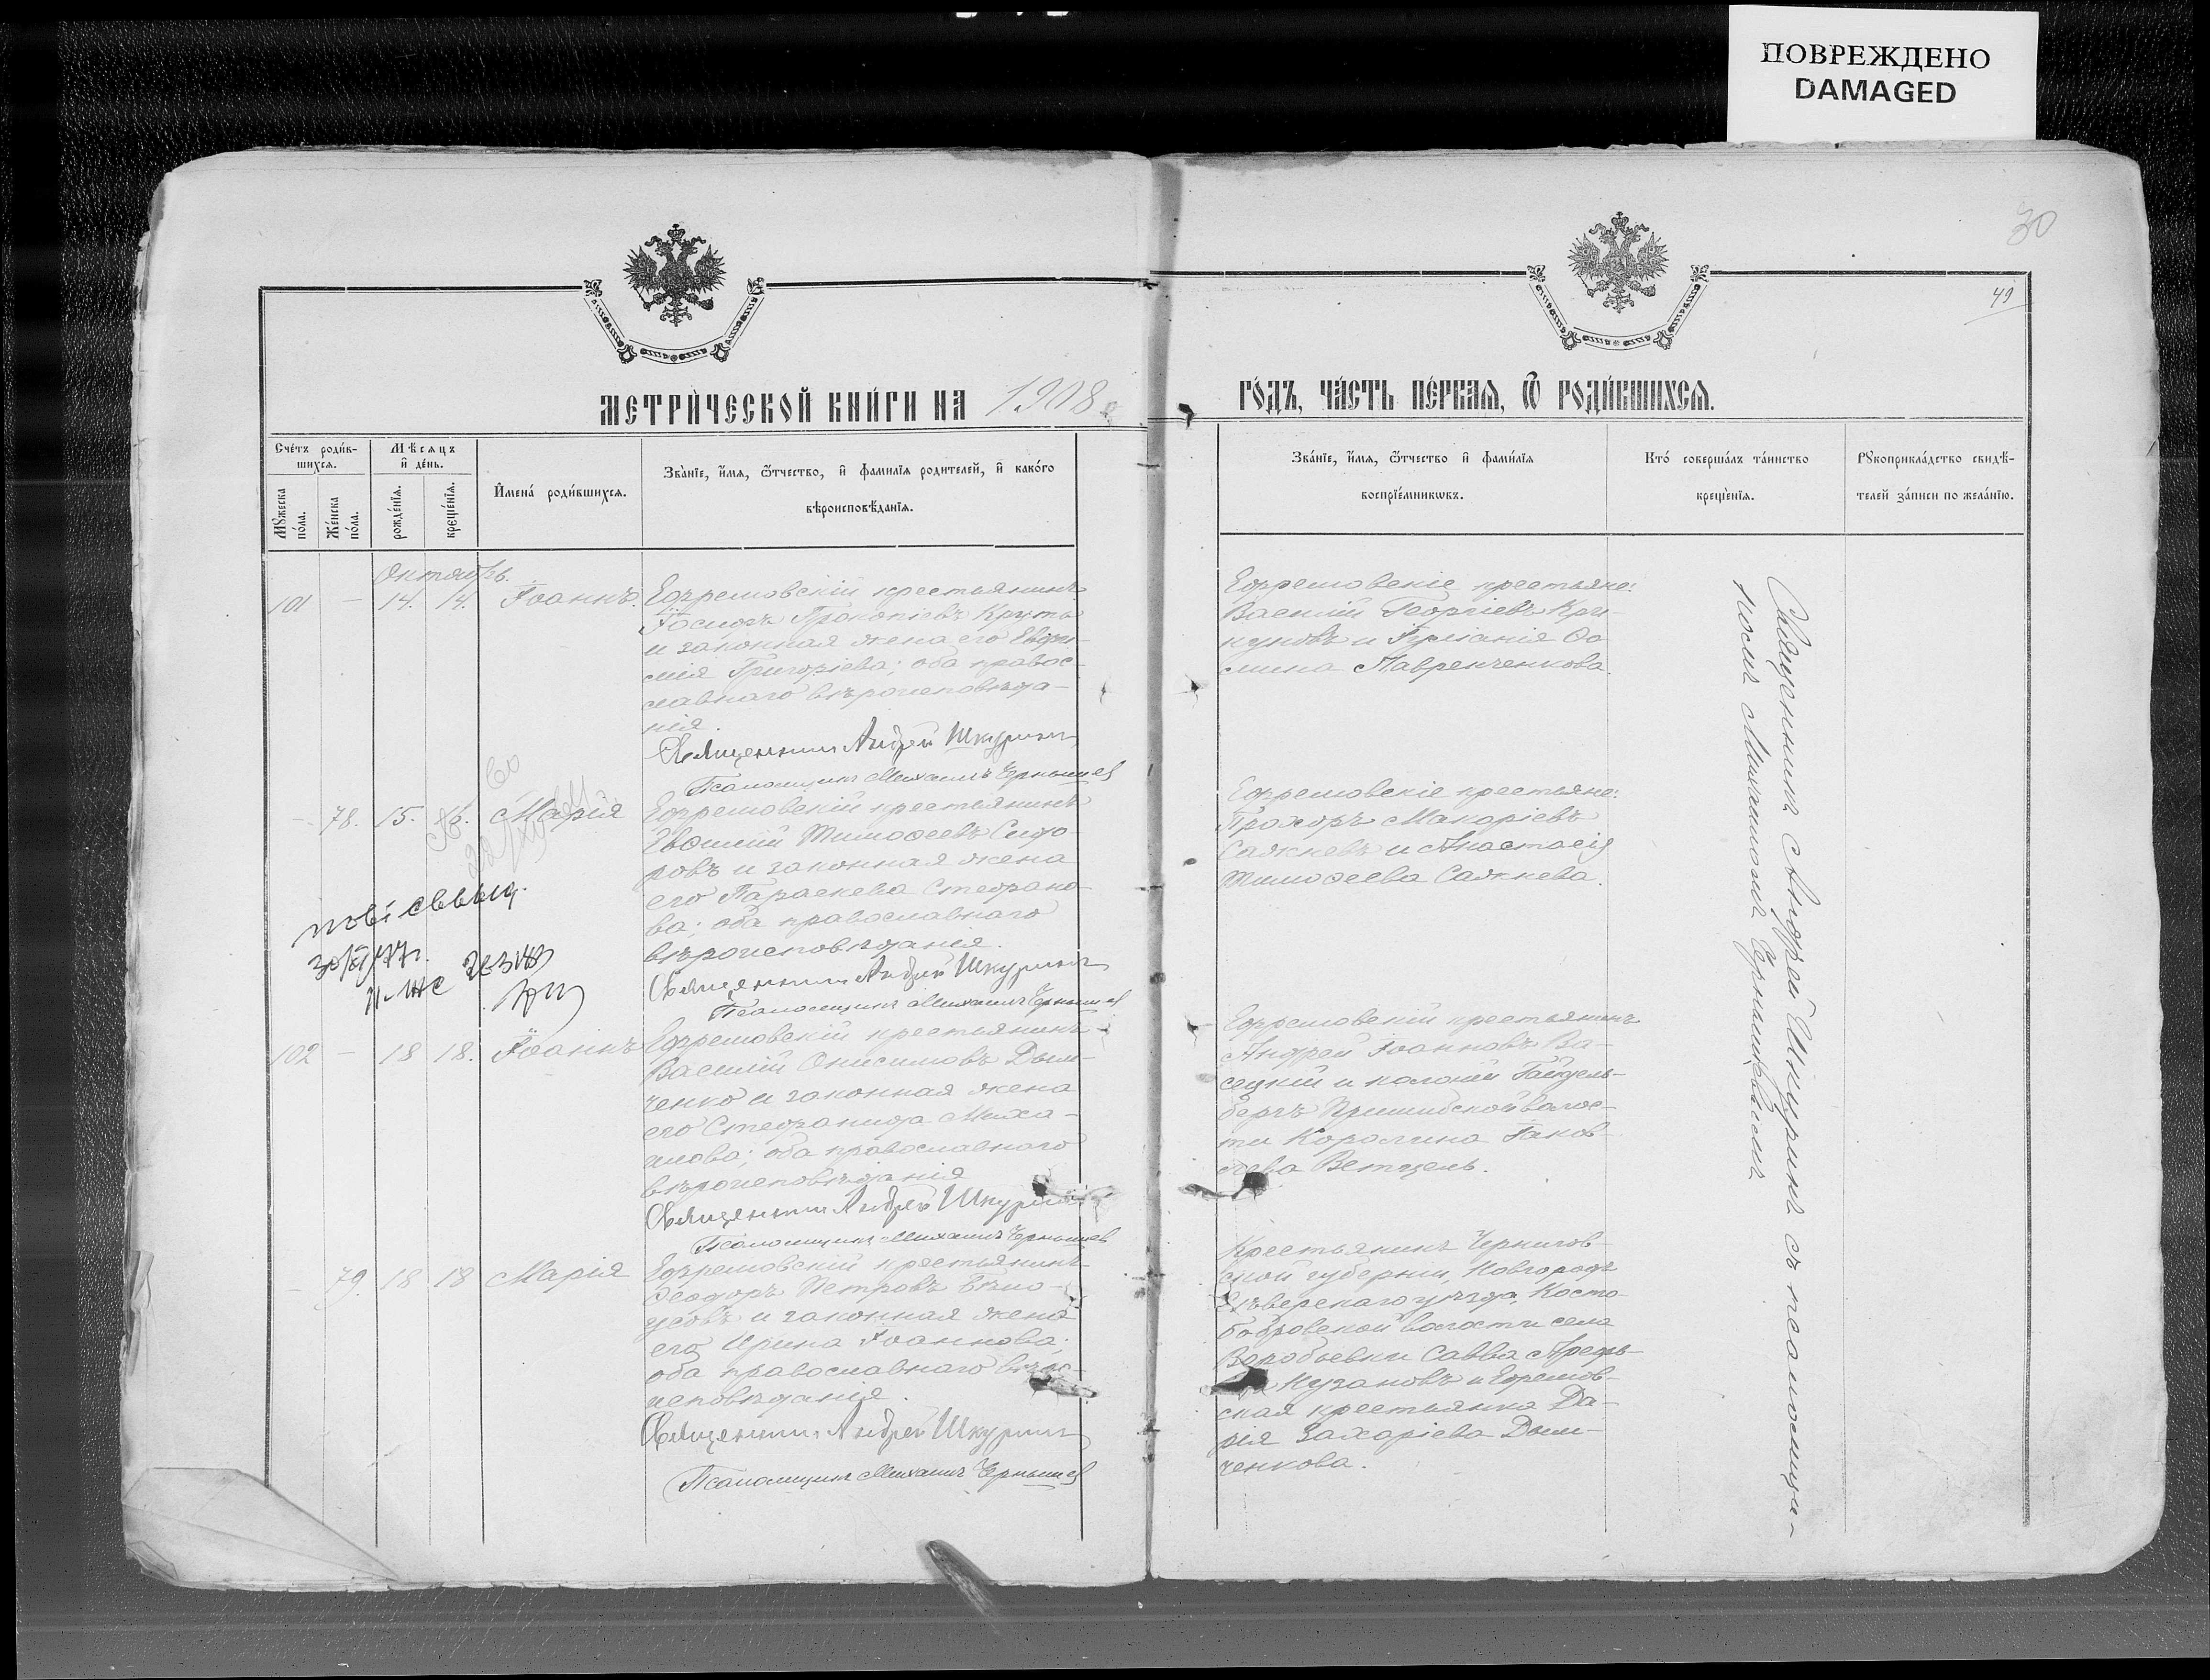 ПОВРЕЖДЕНО
DAMAGED
30
49
МЕТРИ́ЧЕСКОЙ КНИ́ГИ НА 1908
ГО́ДЪ, ЧА́СТЬ ПЕ́РВАѦ, Ѿ РОДИ́ВШИХСѦ.
Сче́тъ роди́в-
шихсѧ.
Мꙋжеска
по́ла.
Же́нска
по́ла.
Мѣсѧцъ
и҆ де́нь.
рожде́нїѧ.
креще́нїѧ.
И҆мена́ роди́вшихсѧ.
Зва́нїе, и҆́мѧ, ѻ҆́тчество, и҆ фамилїѧ родителей, и҆ како́го
вѣроисповѣ́данїѧ.
Зва́нїе, и҆́мѧ, ѻ҆́тчество и҆ фами́лїѧ
воспрїе́мникѡвъ.
Кто́ соверша́лъ та́инство
креще́нїѧ.
Рꙋкоприкла́дство свидѣ́-
телей за́писи по жела́нїю.
Октябрь.
101 — 14. 14. Іоаннъ.
Ефремовскій крестьянинъ
Іосифъ Прокопіевъ Круть
и законная жена его Евфи-
мія Григоріева; оба правос-
лавнаго вѣроисповѣда-
нія.
Священникъ Андрей Шкуринъ
Псаломщикъ Михаилъ Чернышев
Ефремовскіе крестьяне:
Василій Георгіевъ Кри-
куновъ и Іуліанія Ѳо-
мина Лавренченкова.
— 78. 15. 16. Марія
Ефремовскій крестьянинъ
Тимоѳеевъ Сидо-
ровъ и законная жена
его Параскева Стефано-
ва; оба православнаго
вѣроисповѣданія.
Священникъ Андрей Шкуринъ
Псаломщикъ Михаилъ Чернышев
Ефремовскіе крестьяне:
Прохоръ Макаріевъ
Сажневъ и Анастасія
Тимоѳеева Сажнева.
102 — 18 18. Іоаннъ
Ефремовскій крестьянинъ
Василій Онисимовъ Дым-
ченко и законная жена
его Стефанида Миха-
илова; оба православнаго
вѣроисповѣданія
Священникъ Андрей Шкуринъ
Псаломщикъ Михаилъ Чернышев
Ефремовскій крестьянинъ
Андрей Іоанновъ Ва-
сецкій и колоніи Гейдель-
бергъ Пришибской волос-
ти Каролина Іаков-
лева Ветцель.
— 79. 18 18 Марія
Ефремовскій крестьянинъ
Ѳеодоръ Петровъ Бѣло-
усовъ и законная жена
его Ирина Іоаннова;
оба православнаго вѣро-
исповѣданія.
Священникъ Андрей Шкуринъ
Псаломщикъ Михаилъ Чернышев
Крестьянинъ Чернигов-
ской губерніи, Новгородъ
Сѣверскаго уѣзда, Косто-
бобровской волости села
Воробьевки Савва Арефь-
Кузановъ и Ефремов-
ская крестьянка Да-
рія Захаріева Дым-
ченкова.
Священникъ Андрей Шкуринъ съ псаломщи-
комъ Михаиломъ Чернышевымъ